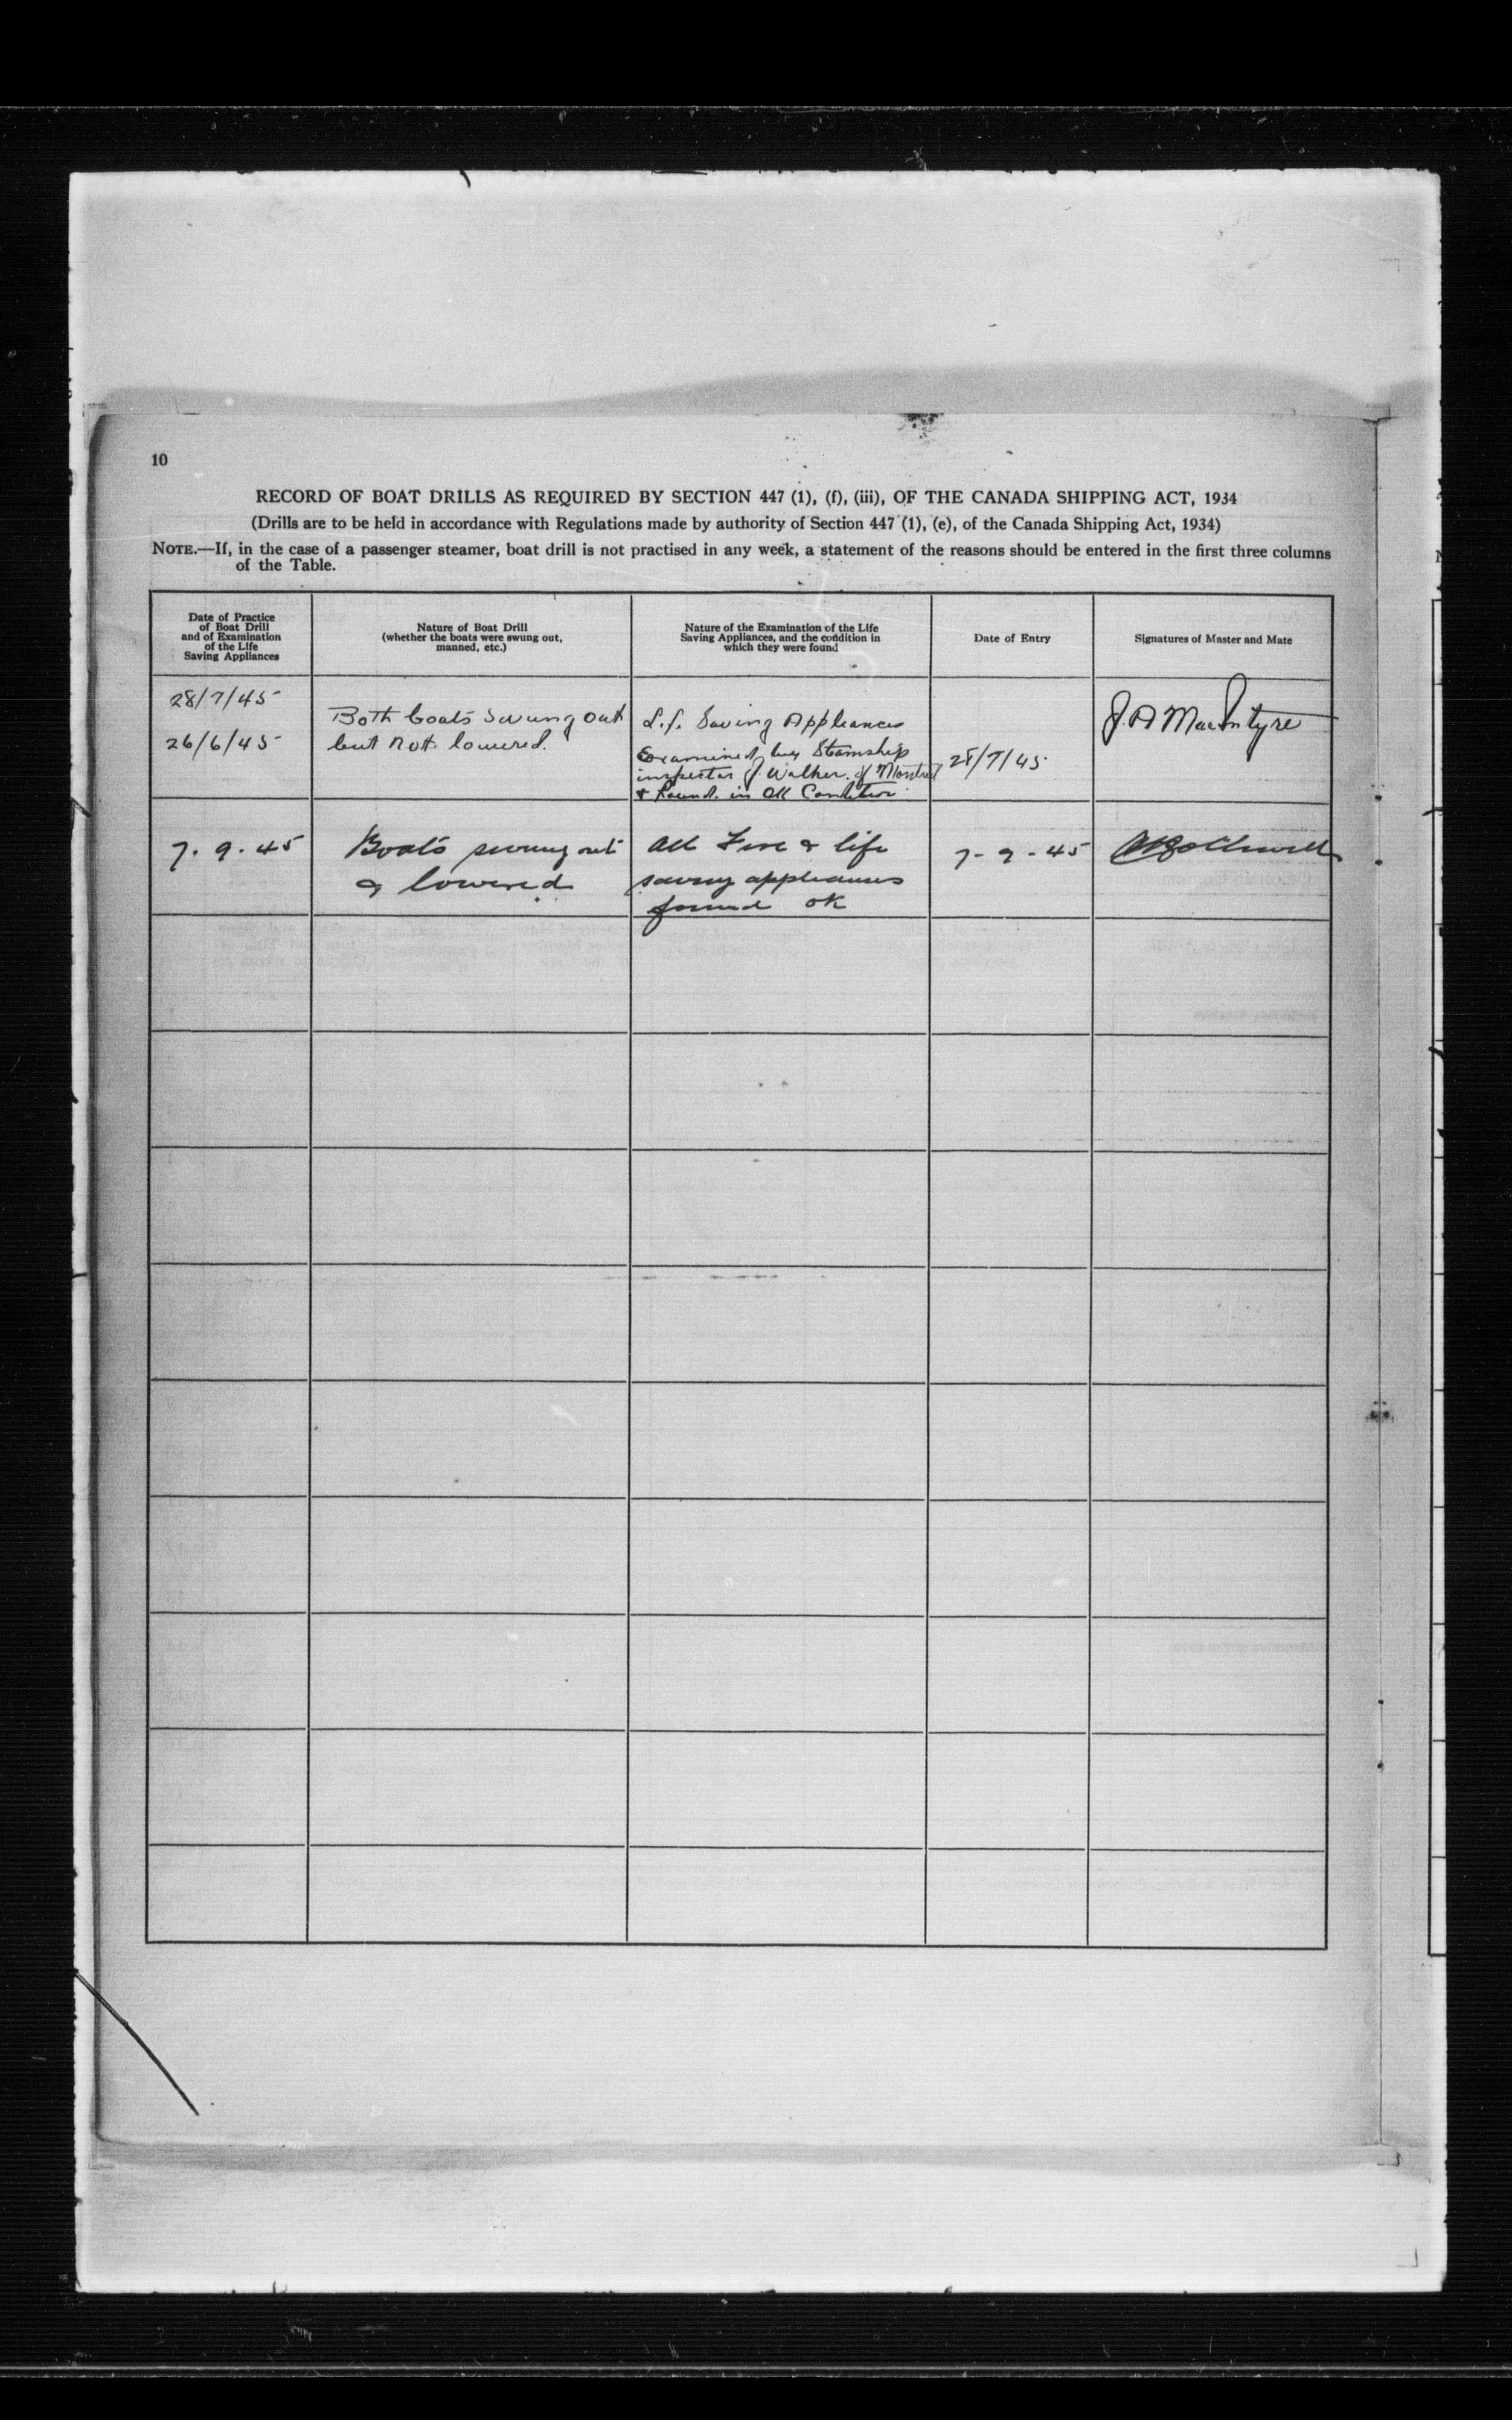 10
RECORD OF BOAT DRILLS AS REQUIRED BY SECTION 447 (1), (f), (iii), OF THE CANADA SHIPPING ACT, 1934
(Drills are to be held in accordance with Regulations made by authority of Section 447 (1), (e), of the Canada Shipping Act, 1934)
NOTE.—If, in the case of a passenger steamer, boat drill is not practised in any week, a statement of the reasons should be entered in the first three columns
of the Table.
Date of Practice
of Boat Drill
and of Examination
of the Life
Saving Appliances
Nature of Boat Drill
(whether the boats were swung out,
manned, etc.)
Nature of the Examination of the Life
Saving Appliances, and the condition in
which they were found
Date of Entry
Signatures of Master and Mate
28/7/45
26/6/45
Both boats swung out
but not lowered.
Saving Appliances
Examined by Steamship
inspector J. Walker. of Montreal
& Found. in Condition
28/7/45
J. A MacIntyre
7. 9. 45
Boats swung out
& lowered
All Fire & life
saving appliances
found OK
7-9-45